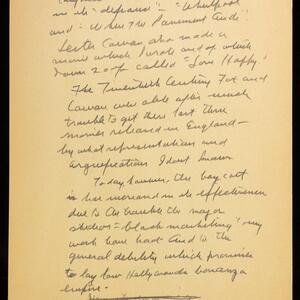 in its "defiance" – "Whirlpool"
and "Where The Pavement Ends"
Lester Cowan also made a
movie which I wrote and of which
I own 20% of called "Love Happy."
The Twentieth Century Fox and
Cowan were able after much
trouble to get these last three
movies released in England –
by what representations and
I dont know
Today however, the boycott
is has increased in its effectiveness
due to the trouble the major
studios – "black marketing" my
work have had and to the
general debility which promises
to lay low Hollywoods bonanza
empire.